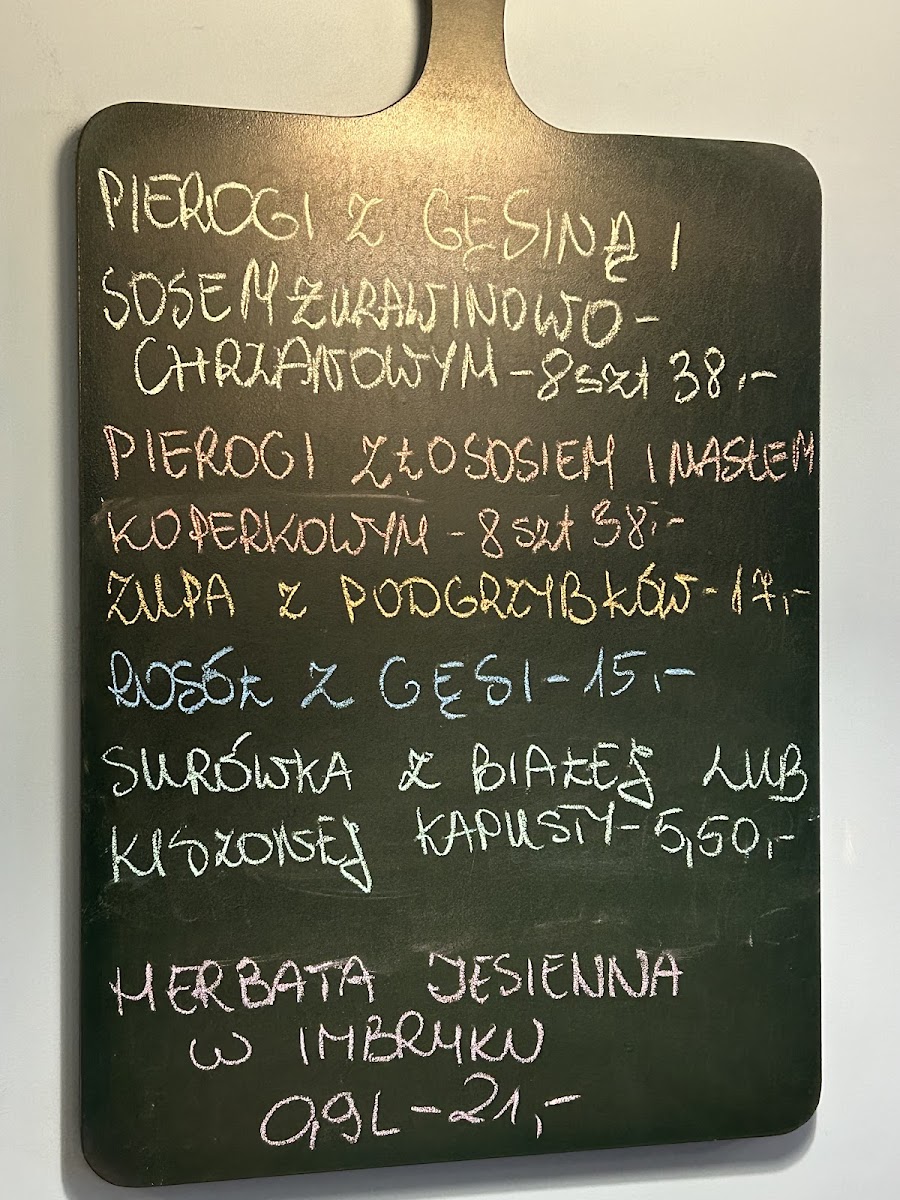 PIEROGI Z GĘSINĄ I
SOSEM ŻURAWINOWO-
CHRZANOWYM - 8 szt 38,-
PIEROGI Z ŁOSOSIEM I MASŁEM
KOPERKOWYM - 8 szt 38,-
ZUPA Z PODGRZYBKÓW - 17,-
ROSÓŁ Z GĘSI - 15,-
SURÓWKA Z BIAŁEJ LUB
KISZONEJ KAPUSTY - 5,50,-
HERBATA JESIENNA
W IMBRYKU
0,9L - 21,-